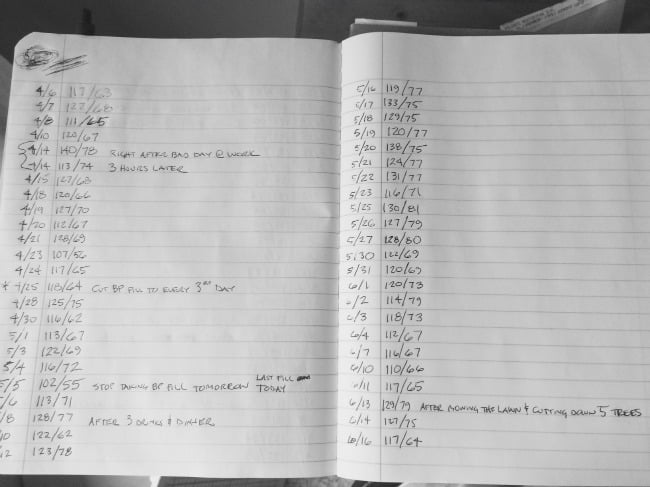 4/6 117/63
4/7 122/68
4/8 111/65
4/10 120/67
4/14 140/78 RIGHT AFTER BAD DAY @ WORK
4/14 113/74 3 HOURS LATER
4/15 127/68
4/18 120/66
4/19 127/70
4/20 112/67
4/21 128/69
4/23 107/56
4/24 117/65
* 4/25 118/64 CUT BP PILL TO EVERY 3RD DAY
4/28 125/75
4/30 116/62
5/1 113/67
5/3 122/69
5/4 116/72
5/5 102/55 STOP TAKING BP PILL TOMORROW LAST PILL TODAY
5/6 113/71
5/8 128/77 AFTER 3 DRINKS & DINNER
10 122/62
12 123/78
5/16 119/77
5/17 133/75
5/18 129/75
5/19 120/77
5/20 138/75
5/21 124/77
5/22 131/77
5/23 116/71
5/25 130/81
5/26 127/79
5/27 128/80
5/30 122/69
5/31 120/69
6/1 120/73
6/2 114/79
6/3 118/73
6/4 112/67
6/7 116/67
6/10 110/66
6/11 117/65
6/13 129/79 AFTER MOWING THE LAWN & CUTTING DOWN 5 TREES
6/14 127/75
6/16 117/64